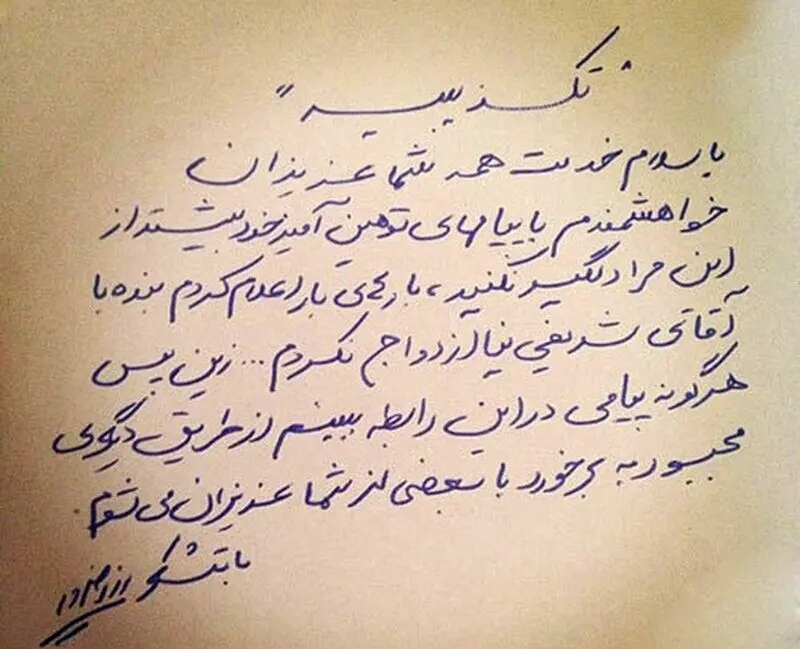 "تکذیبیه"
با سلام خدمت همه شما عزیزان
خواهشمندم با پیامهای توهین آمیز خود بیشتر از
این مرا دلگیر نکنید، بارهای بار اعلام کردم بنده با
آقای شریفی نیا ازدواج نکردم... زین پس
هرگونه پیامی در این رابطه ببینم از طریق دیگری
مجبور به برخورد با بعضی از شما عزیزان می شوم.
با تشکر